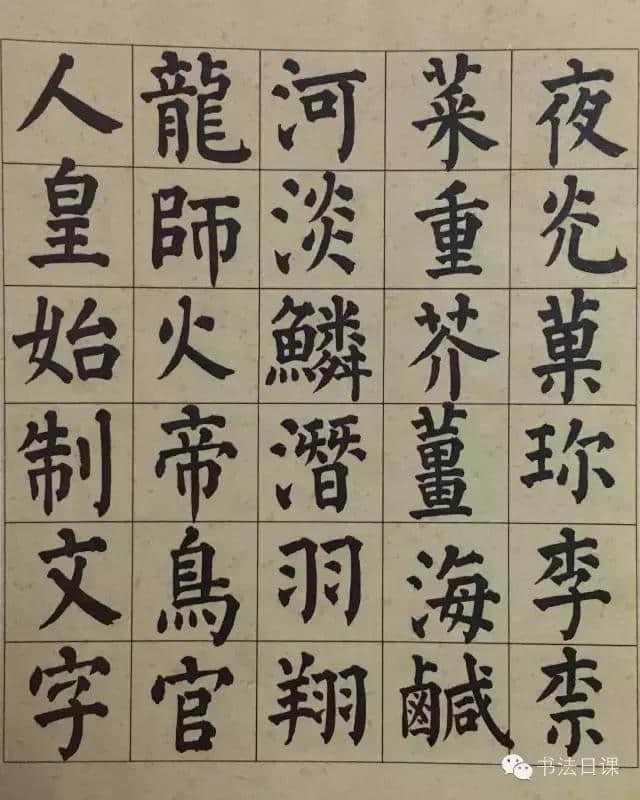 夜光菓珎李柰
菜重芥薑海鹹
河淡鱗潛羽翔
龍師火帝鳥官
人皇始制文字
书法日课